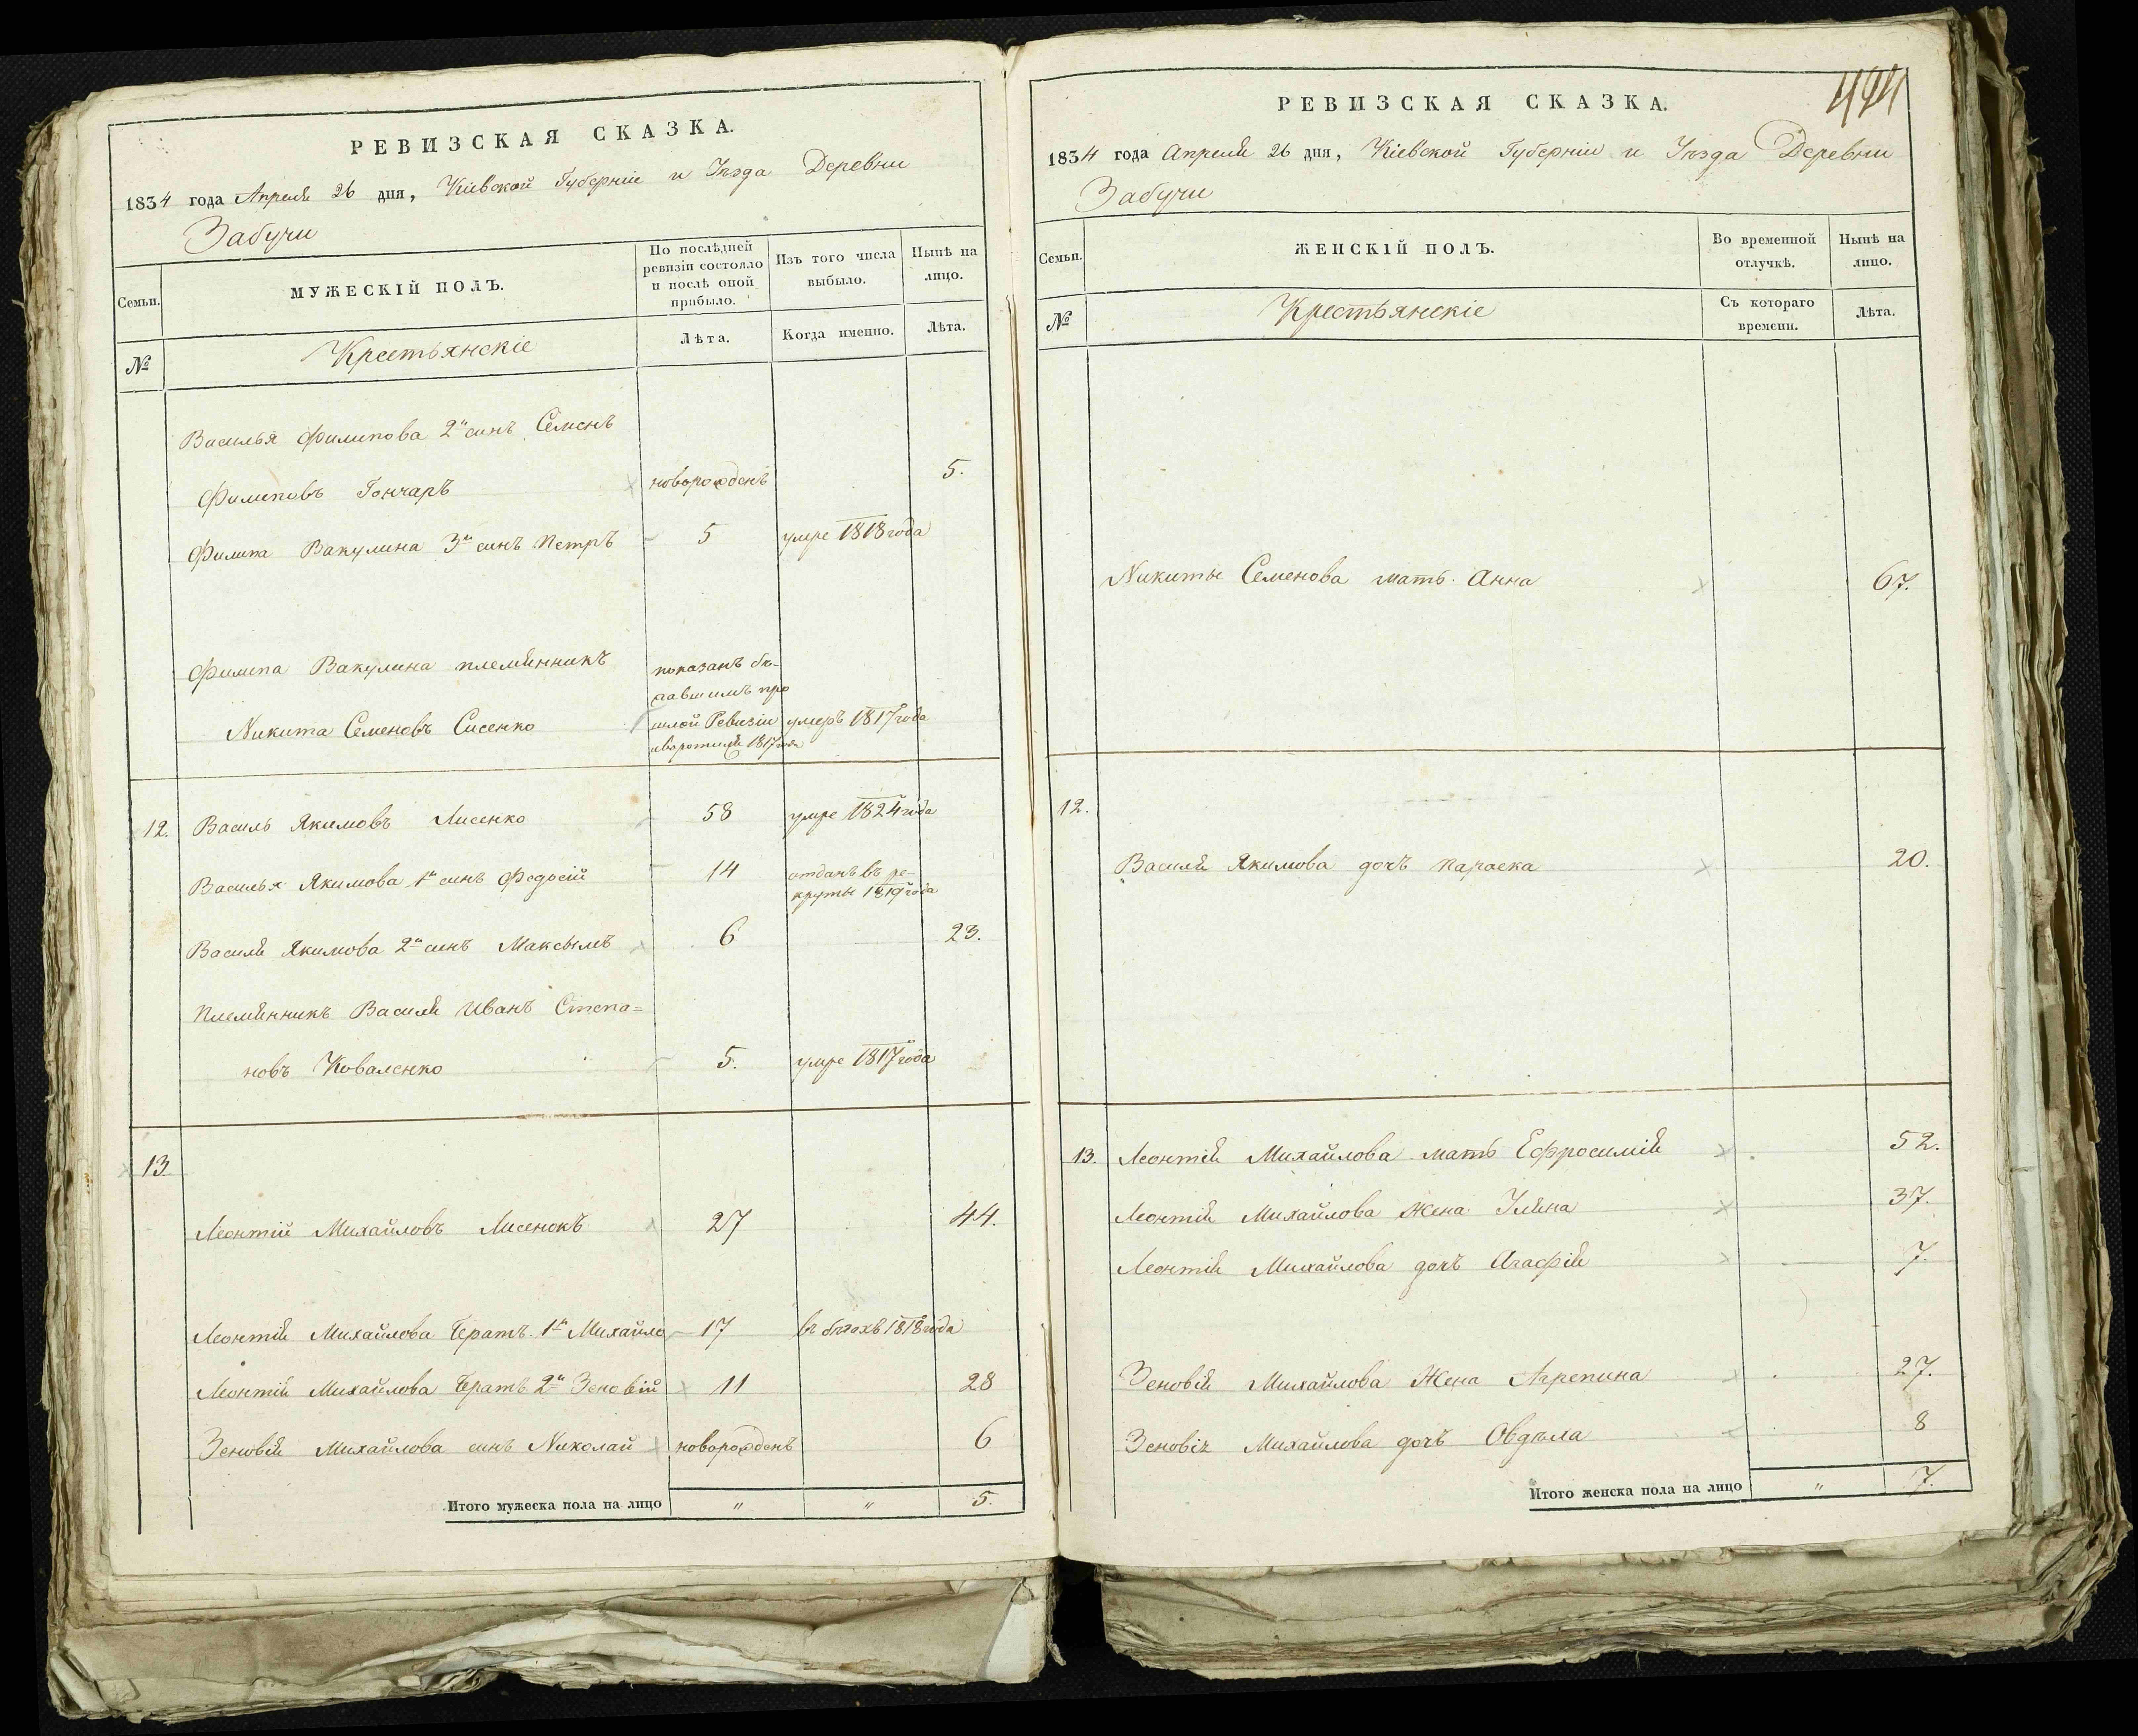 РЕВИЗСКАЯ СКАЗКА.
1834 года Апреля 26 дня, Кіевской Губерніи и Уезда Деревни
Забучи
Семьи.
МУЖЕСКІЙ ПОЛЪ.
По послѣдней
ревизіи состояло
и послѣ оной
прибыло.
Изъ того числа
выбыло.
Нынѣ на
лицо.
№
Крестьянскіе
Лѣта.
Когда именно.
Лѣта.
Василья Филипова 2й синъ Семенъ
Филиповъ Гончаръ новорожденъ 5.
Филипа Вакулина 3й синъ Петръ 5 умре 1818 года
Филипа Вакулина племянникъ показанъ бе-
жавшимъ про
Никита Семеновъ Сисенко шлой Ревизіи умеръ 1817 года
1817 года
12. Василь Якимовъ Лисенко 58 умре 1824 года
Василья Якимова 1й синъ Федосій 14 отданъ въ ре-
круты 1819 года
Василя Якимова 2й синъ Максымъ 6 23.
Племянникъ Василя Иванъ Степа=
новъ Коваленко 5. умре 1817 года
13.
Леонтій Михайловъ Лисенокъ 27 44.
Леонтія Михайлова братъ 1й Михайло 17 въ бегахъ 1818 года
Леонтія Михайлова братъ 2й Зеновій 11 28
Зеновія Михайлова синъ Николай новорожденъ 6
Итого мужеска пола на лицо " " 5.
444
РЕВИЗСКАЯ СКАЗКА.
1834 года Апреля 26 дня, Кіевской Губерніи и Уезда Деревни
Забучи
Семьи.
ЖЕНСКІЙ ПОЛЪ.
Во временной
отлучкѣ.
Нынѣ на
лицо.
№
Крестьянскіе
Съ котораго
времени.
Лѣта.
Никиты Семенова мать Анна 67.
12.
Василя Якимова дочъ Параска 20.
13. Леонтія Михайлова мать Ефросимія 52.
Леонтія Михайлова жена Уляна 37.
Леонтія Михайлова дочъ Агафія 7.
Зеновія Михайлова Жена Агрепина 27.
Зеновія Михайлова дочъ Овдѣла 8
Итого женска пола на лицо " 7.